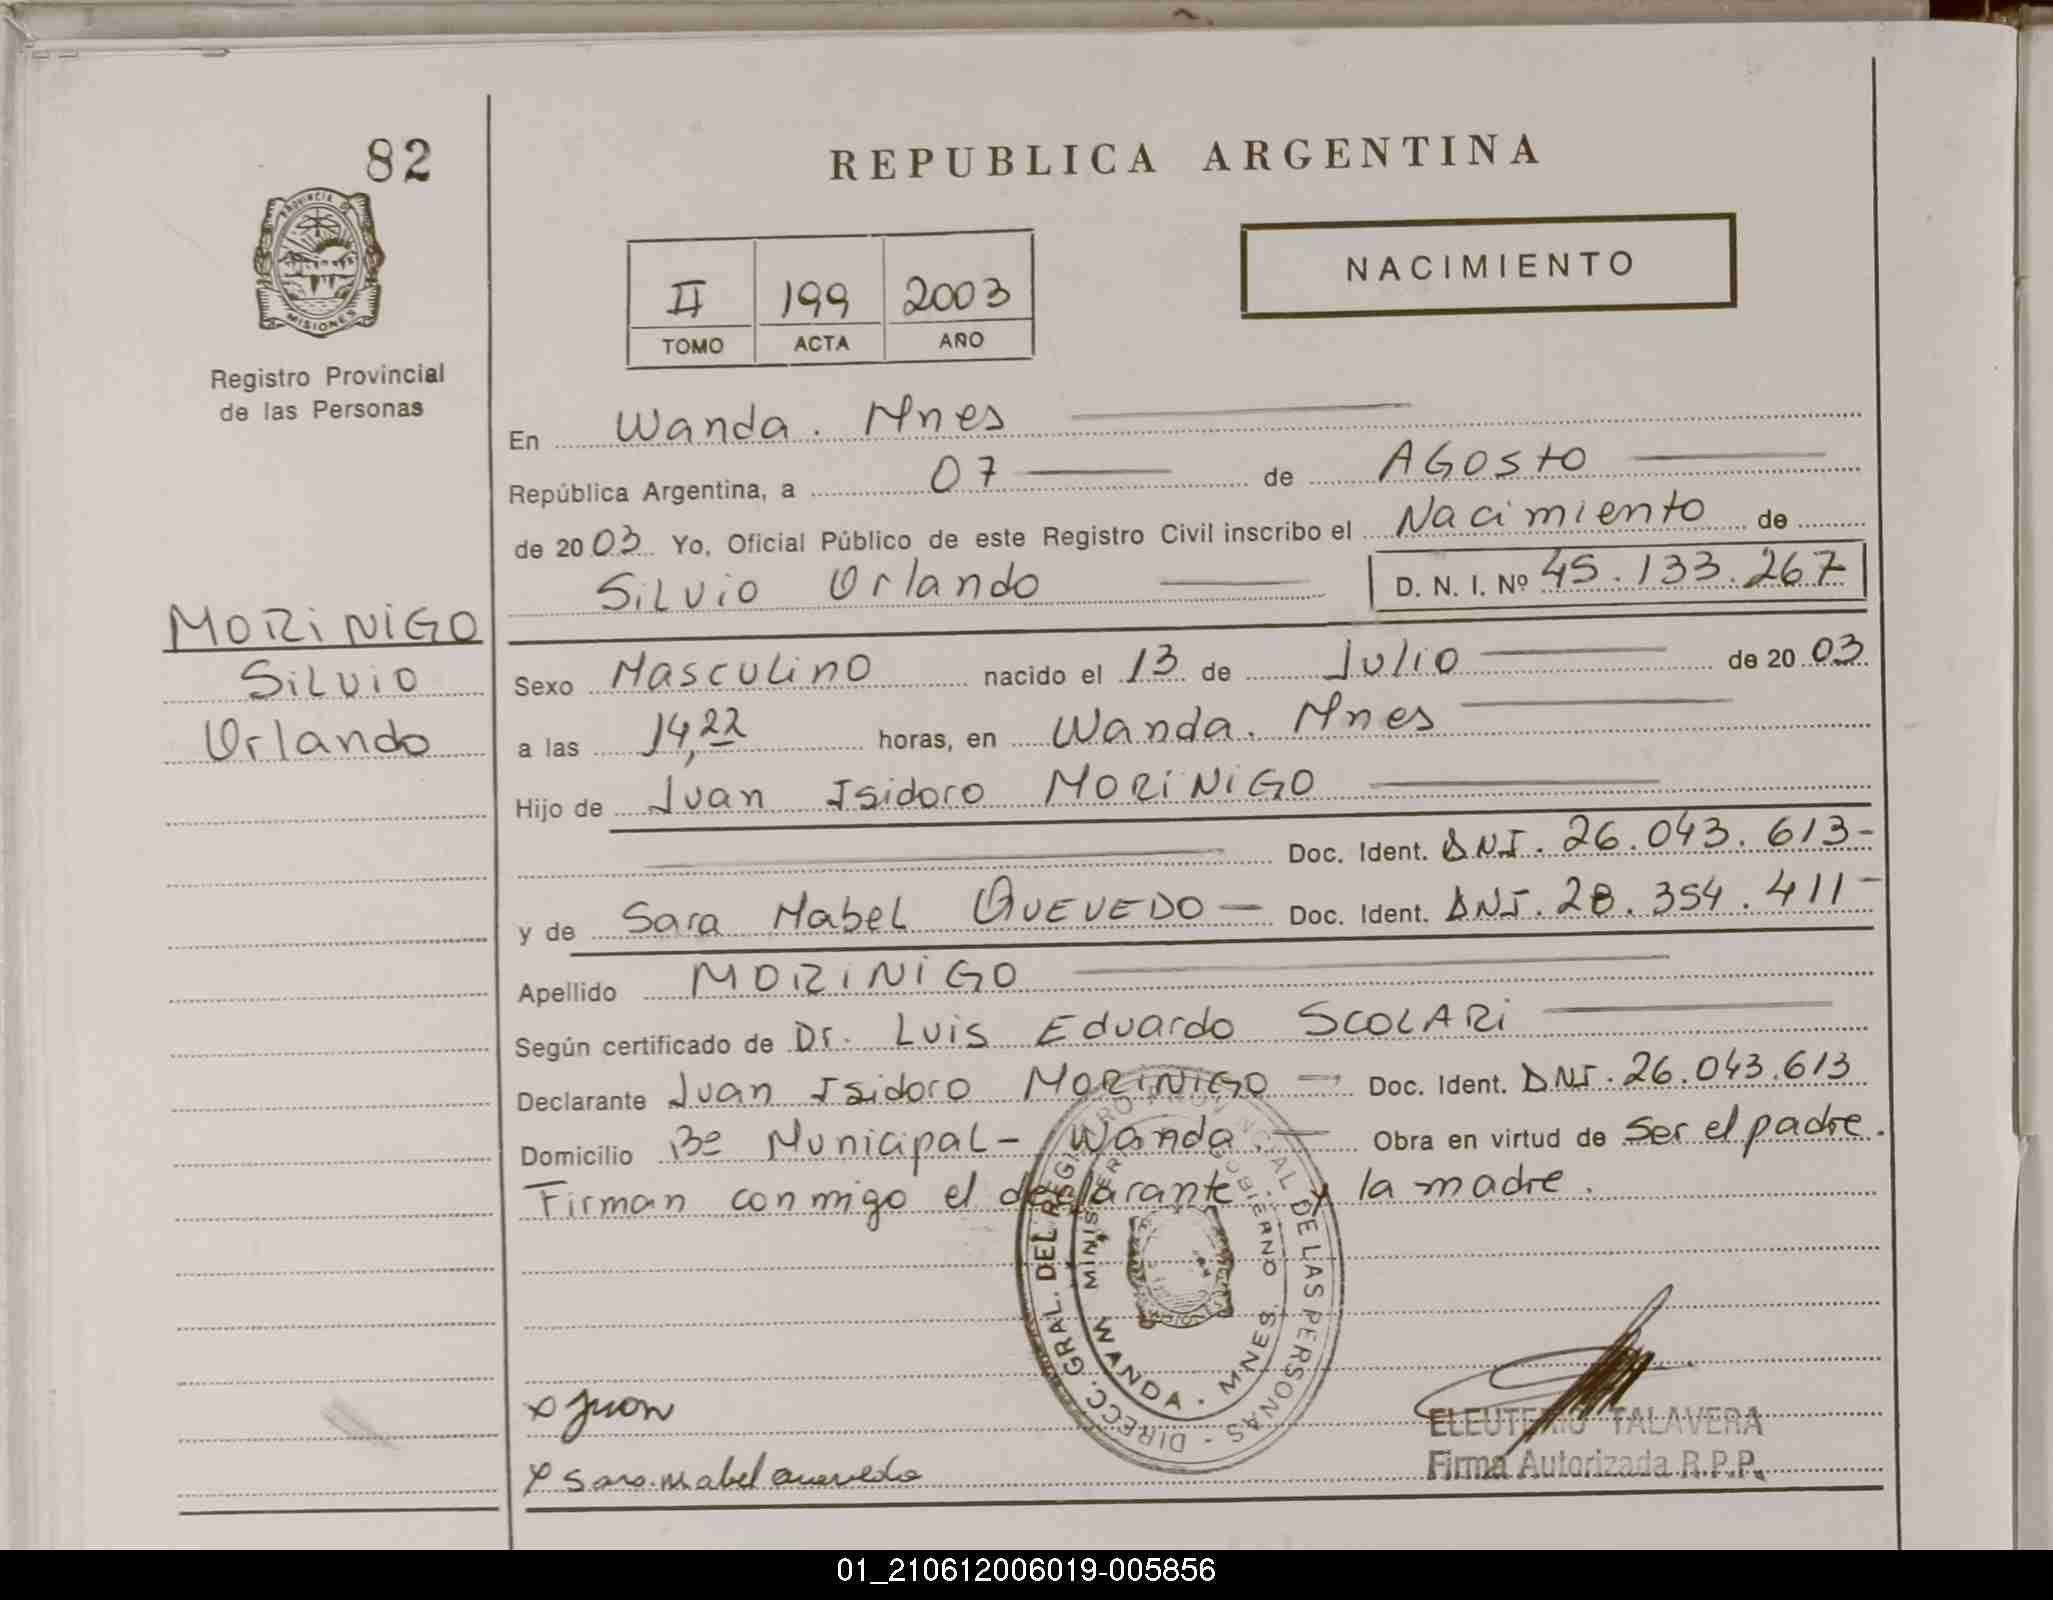 82
REPUBLICA ARGENTINA
PROVINCIA DE
MISIONES
Registro Provincial
de las Personas
II 199 2003
TOMO ACTA AÑO
NACIMIENTO
En Wanda. Mnes
República Argentina, a 07 de AGosto
de 2003 Yo, Oficial Público de este Registro Civil inscribo el Nacimiento de
Silvio Orlando D. N. I. Nº 45.133.267
MORiNiGO
Silvio
Orlando
Sexo Masculino nacido el 13 de Julio de 2003
a las 14,22 horas, en Wanda. Mnes
Hijo de Juan Isidoro MORiNiGO
Doc. Ident. DNI. 26.043.613-
y de Sara Mabel QUEVEDO — Doc. Ident. DNI. 28.354.411-
Apellido MORiNiGO
Según certificado de Dr. Luis Eduardo SCOLARi
Declarante Juan Isidoro MORiNiGO — Doc. Ident. DNI. 26.043.613
Domicilio Bº Municipal- Wanda. — Obra en virtud de ser el padre.
Firman conmigo el declarante y la madre.
DIRECC. GRAL. DEL REGISTRO PROVINCIAL DE LAS PERSONAS -
MINISTERIO GOBIERNO
WANDA - MNES.
x Juan
x Sara Mabel Quevedo
ELEUTERIO TALAVERA
Firma Autorizada R.P.P.
01_210612006019-005856